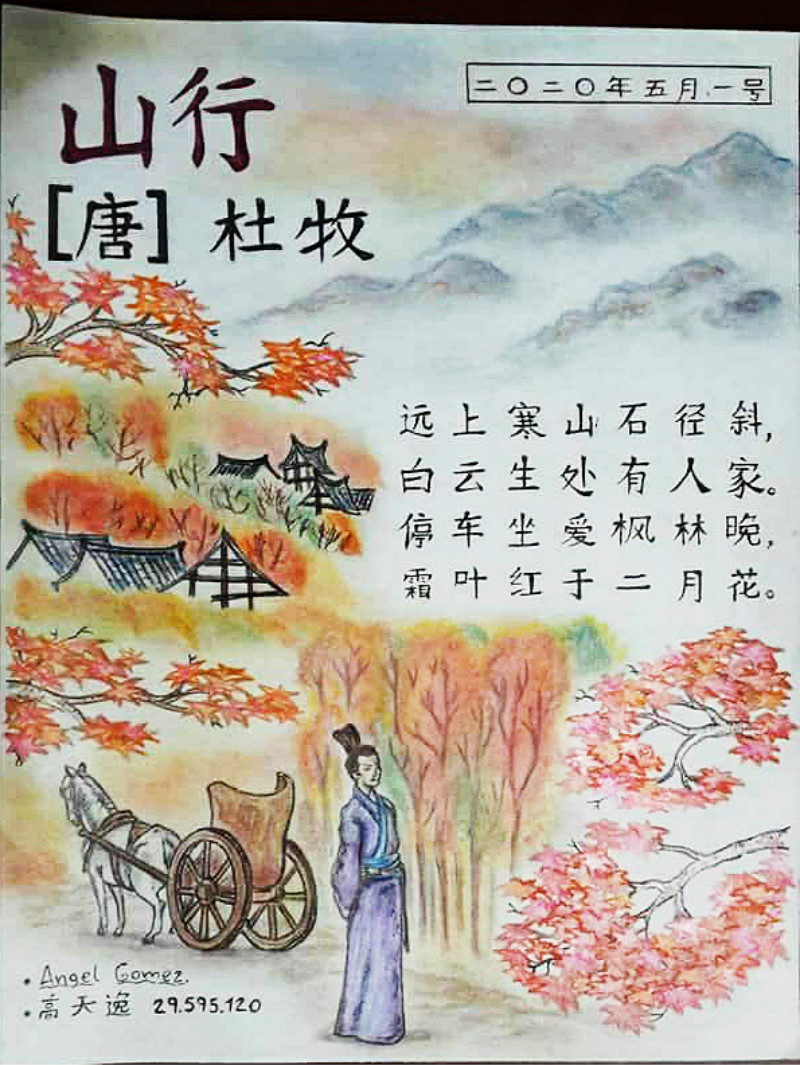 山行
二〇二〇年五月一号
[唐] 杜牧
远上寒山石径斜,
白云生处有人家。
停车坐爱枫林晚,
霜叶红于二月花。
· Angel Gomez.
· 高天逸 29.595.120